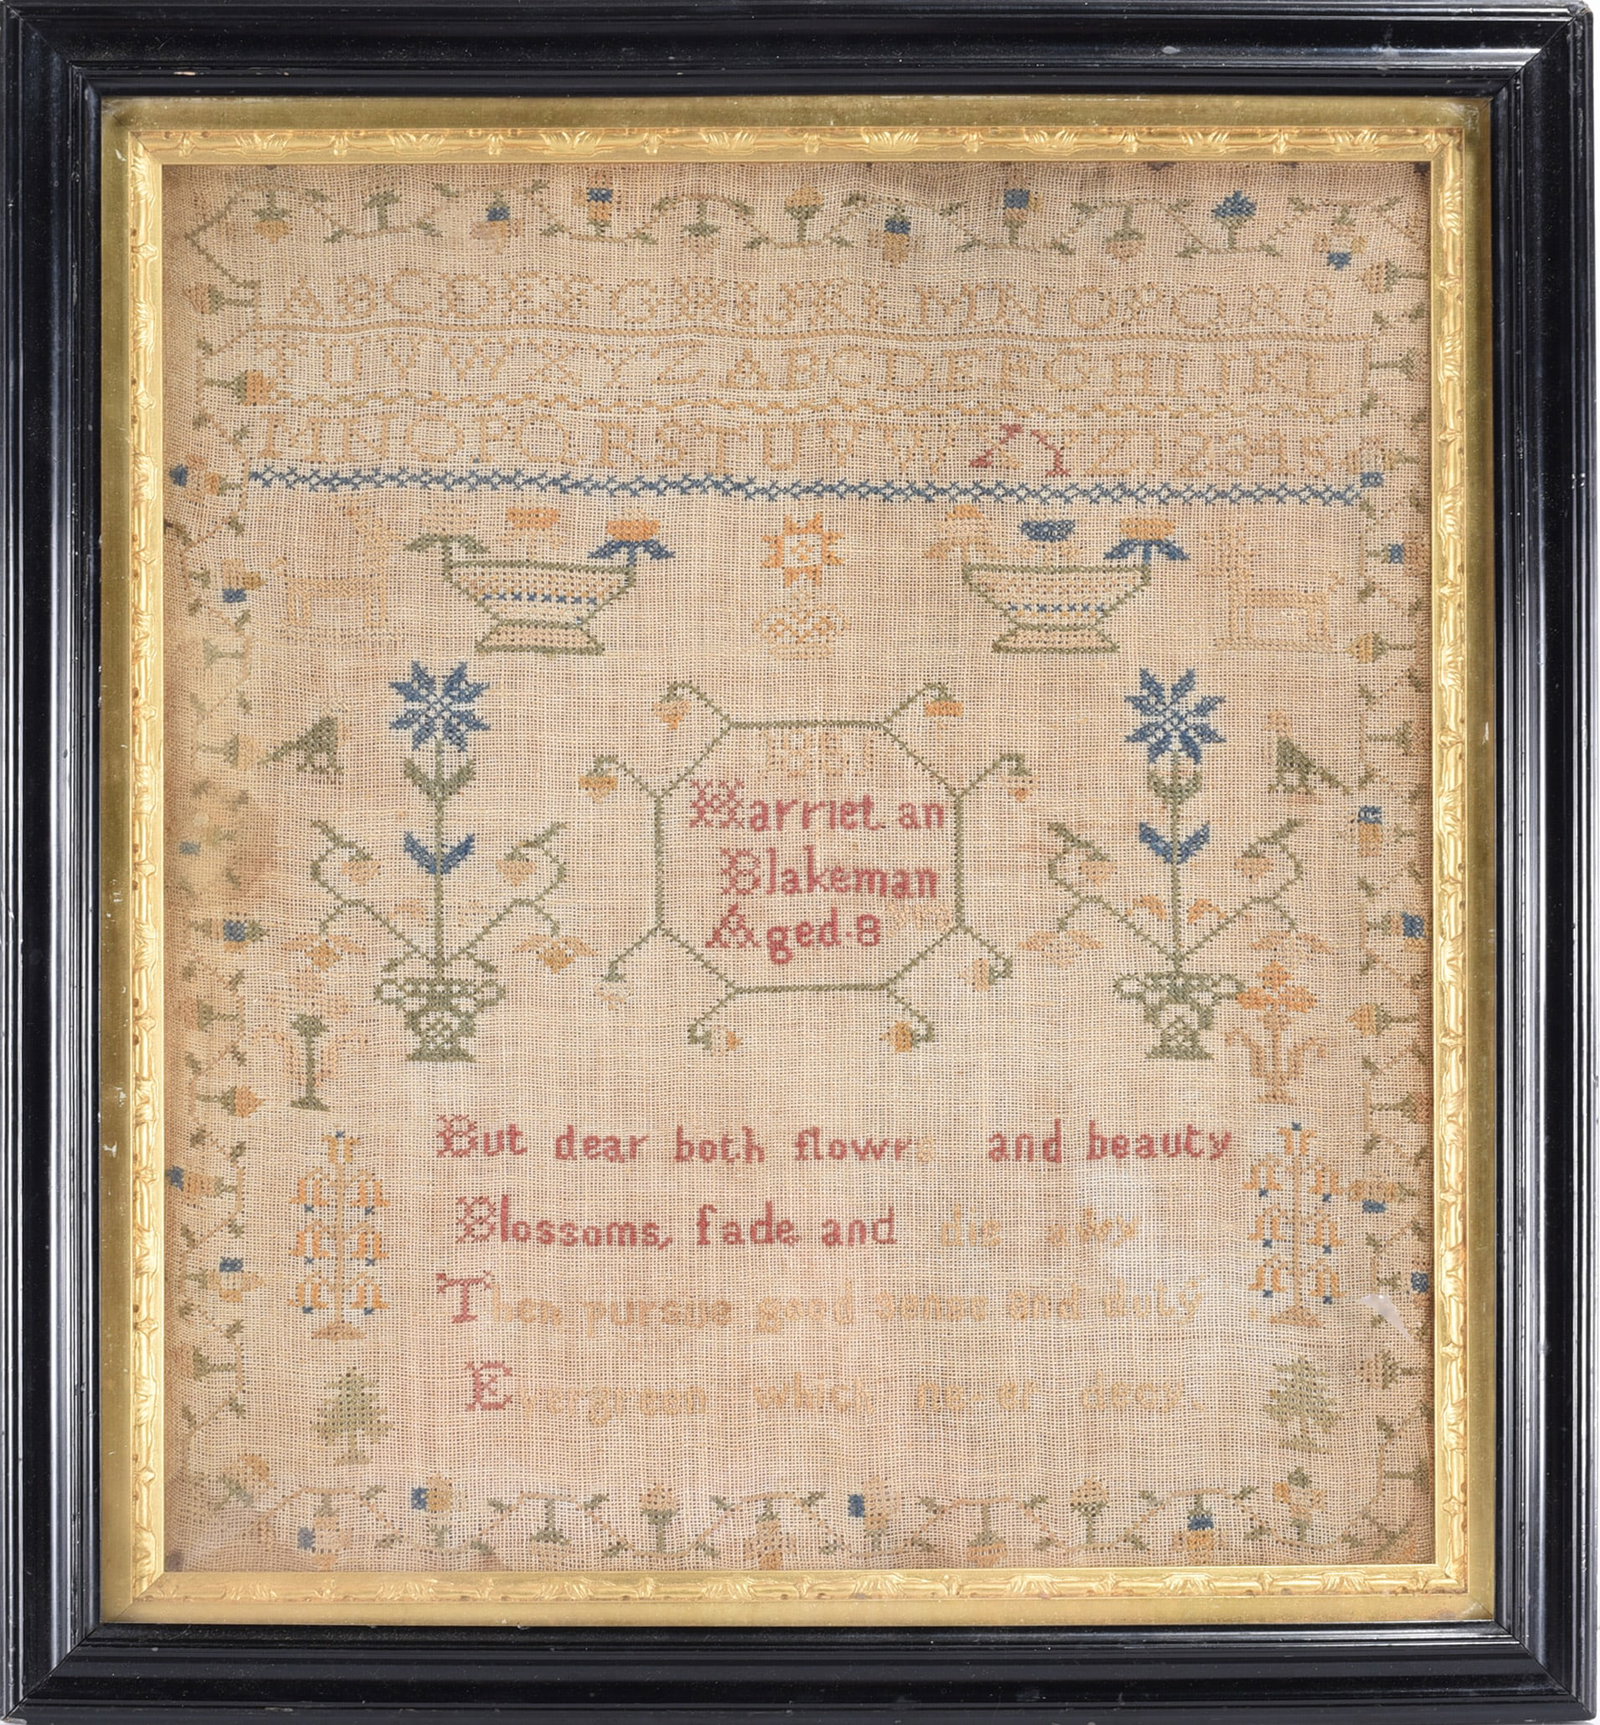 ABCDEFGHIJKLMNOPQRS
TUVWXYZABCDEFGHIJKL
MNOPQRSTUVWXYZ12345
Harriet an
Blakeman
Aged.8
But dear both flowrs and beauty
Blossoms, fade and die
Then pursue good sense and duty
Evergreen which never decy